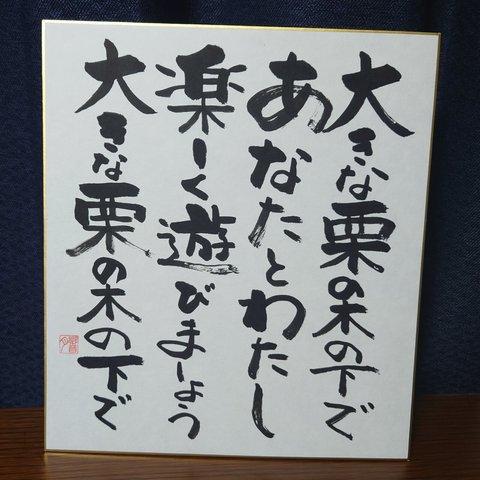 大きな栗の木の下で
あなたとわたし
楽しく遊びましょう
大きな栗の木の下で